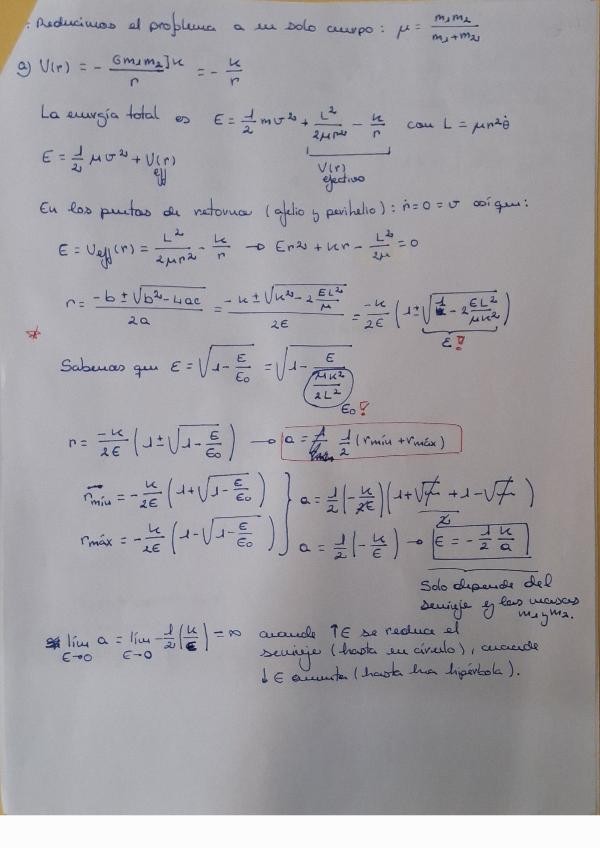 : Reducimos el problema a un solo cuerpo: μ = m₁m₂ / m₁+m₂
a) V(r) = - Gm₁m₂]k / r = - k/r
La energía total es E = 1/2 mv² + L²/2μr² - k/r con L = μr²θ̇
V(r) efectivo
E = 1/2 μv² + V(r)eff
En los puntos de retorno (afelio y perihelio): ṙ=0=v así que:
E = Ueff(r) = L²/2μr² - k/r → Er² + kr - L²/2μ = 0
r = -b ± √(b²-4ac) / 2a = -k ± √(k² - 2EL²/μ) / 2E = -k/2E (1 ± √(1 - 2EL²/μk²))
ε!
*
Sabemos que ε = √(1 - E/E₀) = √(1 - E/(μk²/2L²))
E₀!
r = -k/2E (1 ± √(1 - E/E₀)) → a = 1/2 (rmín + rmáx)
rmín = -k/2E (1 + √(1 - E/E₀)) } a = 1/2 (-k/2E)(1+√ + 1-√ )
2
rmáx = -k/2E (1 - √(1 - E/E₀)) a = 1/2 (-k/E) → E = - 1/2 k/a
Solo depende del
semieje y las masas
m₁ y m₂.
lím a = lím - 1/2 (k/E) = ∞ cuando ↑E se reduce el
E→0 E→0 semieje (hasta un círculo), cuando
↓E aumenta (hasta una hipérbola).